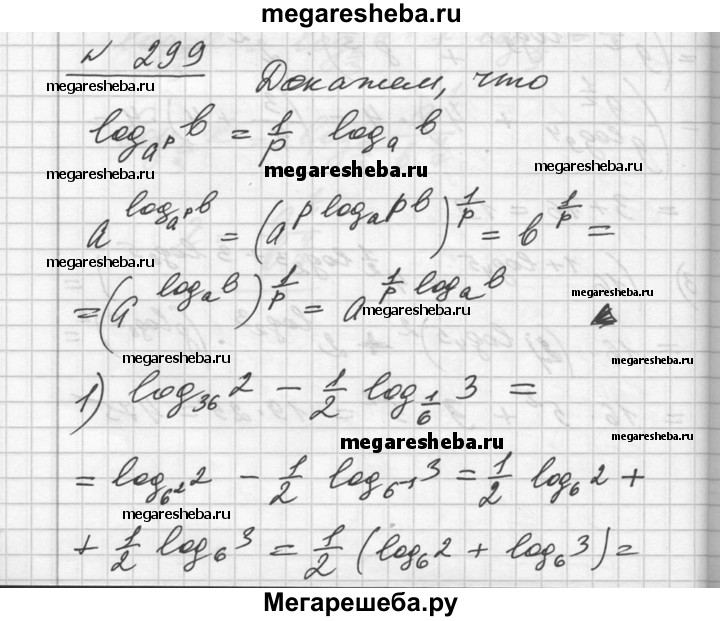 megaresheba.ru
№ 299 Докажем, что
megaresheba.ru
log_{a^p} b = 1/p log_a b
megaresheba.ru
megaresheba.ru
a^{log_{a^p} b} = (a^{p log_{a^p} b})^{1/p} = b^{1/p} =
megaresheba.ru
= (a^{log_a b})^{1/p} = a^{1/p log_a b}
megaresheba.ru
megaresheba.ru
megaresheba.ru
1) log_{36} 2 - 1/2 log_{1/6} 3 =
megaresheba.ru
= log_{6^2} 2 - 1/2 log_{6^{-1}} 3 = 1/2 log_6 2 +
megaresheba.ru
+ 1/2 log_6 3 = 1/2 (log_6 2 + log_6 3) =
megaresheba.ru
Мегарешеба.ру